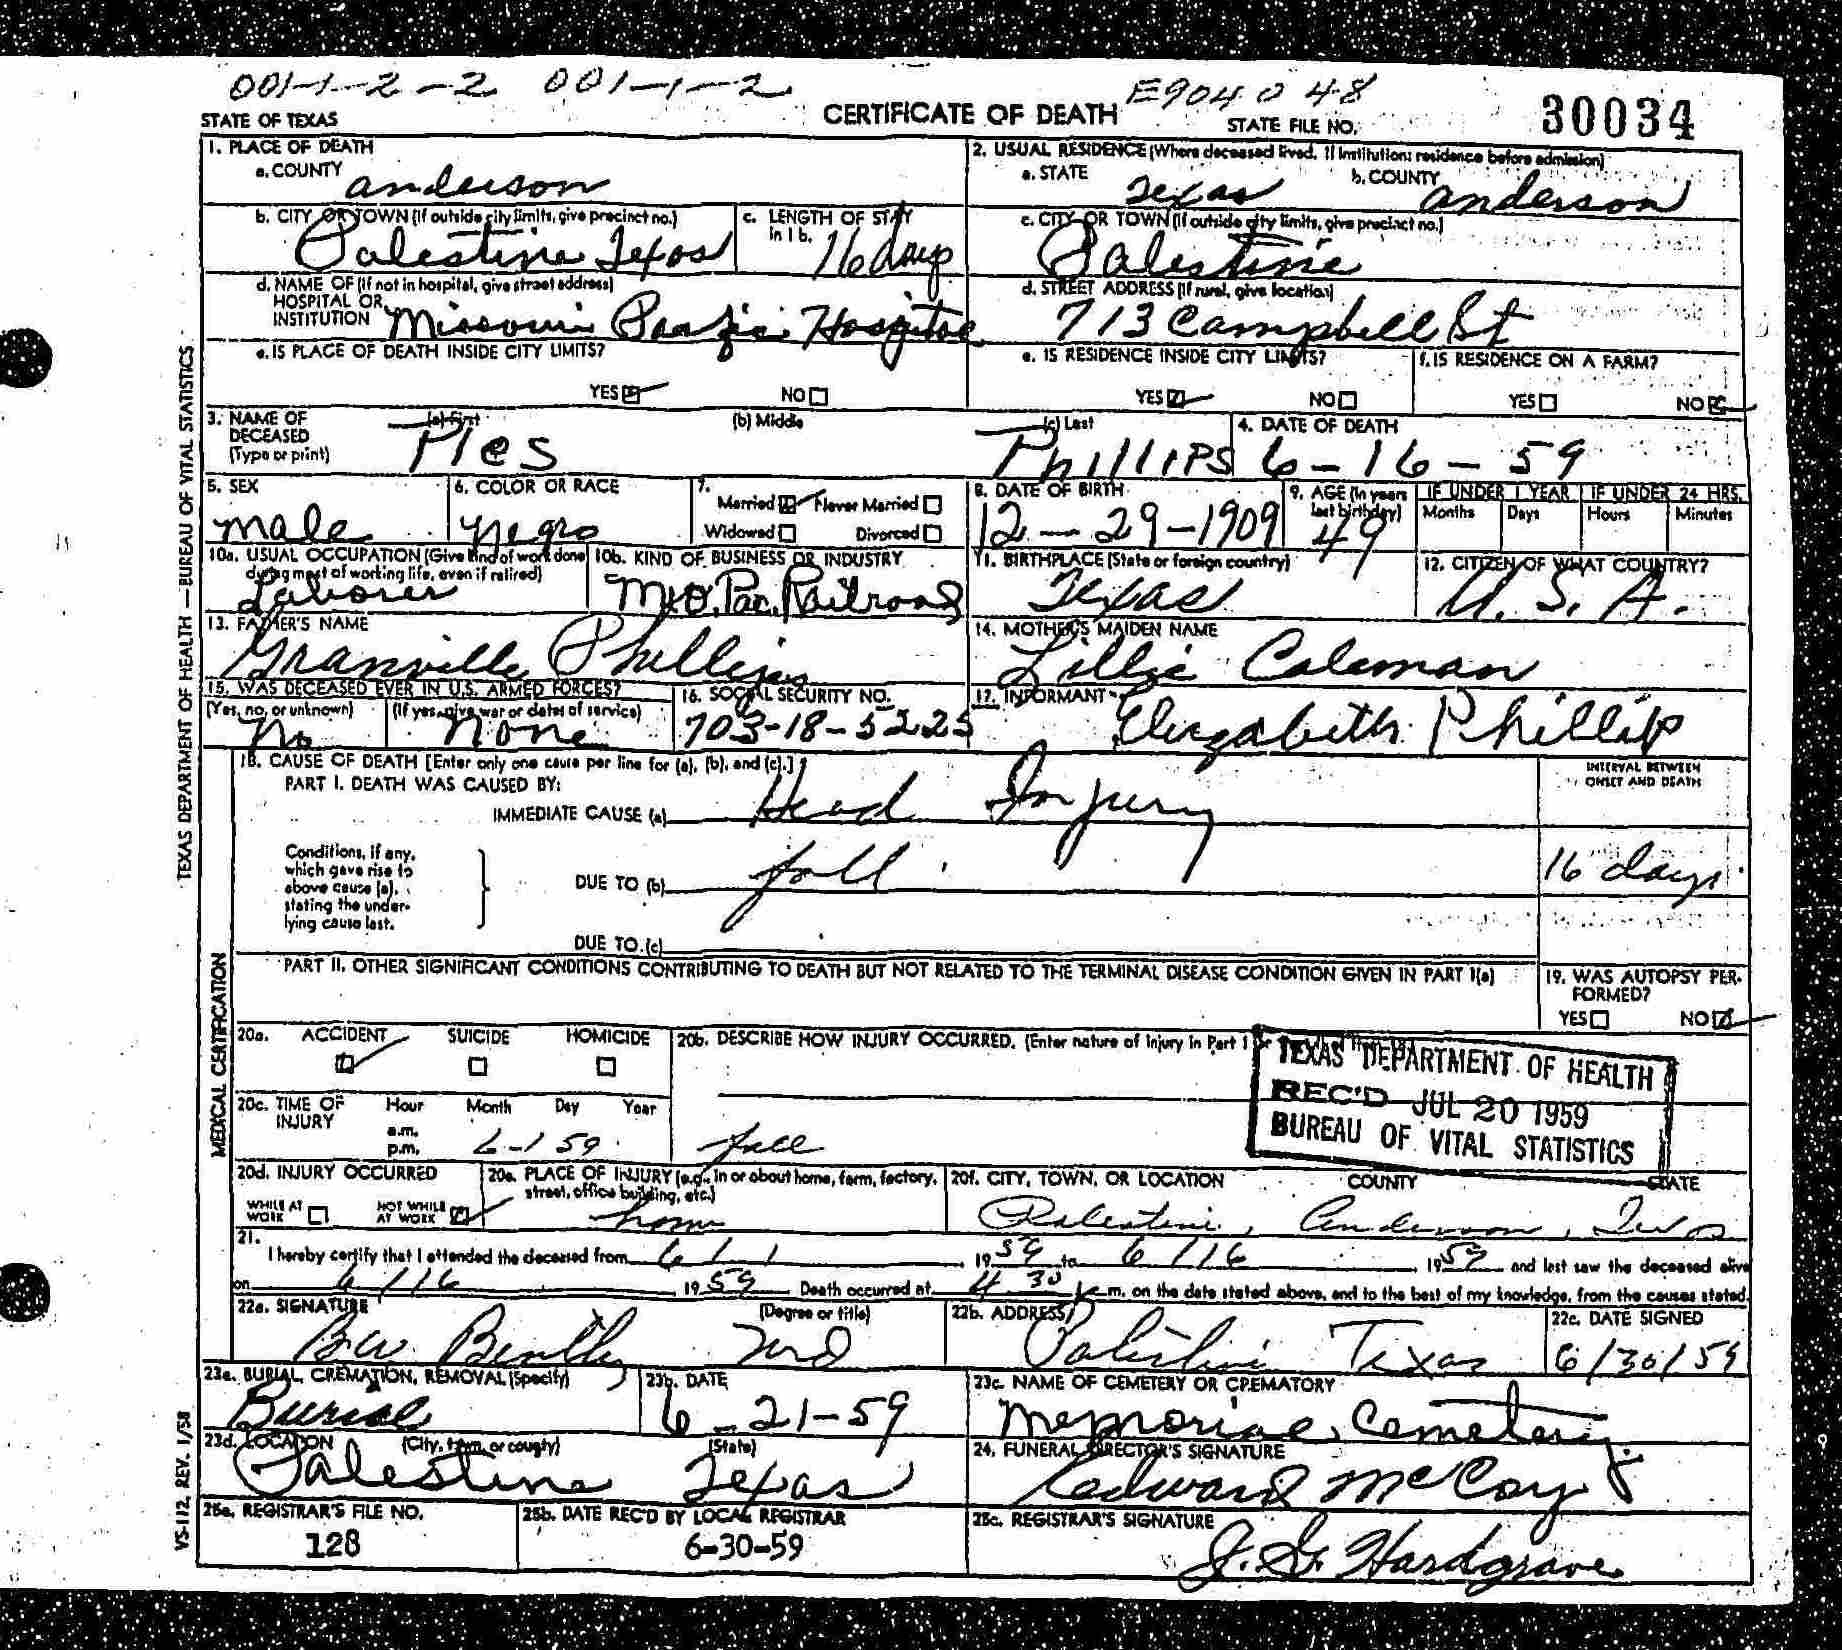 001-1-2-2 001-1-2 E904 0 48
STATE OF TEXAS CERTIFICATE OF DEATH STATE FILE NO. 30034
1. PLACE OF DEATH
a. COUNTY Anderson
2. USUAL RESIDENCE (Where deceased lived. If institution: residence before admission)
a. STATE Texas b. COUNTY Anderson
b. CITY OR TOWN (If outside city limits, give precinct no.) Palestine Texas
c. LENGTH OF STAY in 1b. 16 days
c. CITY OR TOWN (If outside city limits, give precinct no.) Palestine
d. NAME OF (If not in hospital, give street address) HOSPITAL OR INSTITUTION Missouri Pacific Hospital
d. STREET ADDRESS (If rural, give location) 713 Campbell St
e. IS PLACE OF DEATH INSIDE CITY LIMITS?
YES NO
e. IS RESIDENCE INSIDE CITY LIMITS?
YES NO
f. IS RESIDENCE ON A FARM?
YES NO
3. NAME OF DECEASED (Type or print)
(a) First Ples (b) Middle (c) Last Phillips
4. DATE OF DEATH 6-16-59
5. SEX Male
6. COLOR OR RACE Negro
7. Married Never Married
Widowed Divorced
8. DATE OF BIRTH 12-29-1909
9. AGE (In years last birthday) 49
IF UNDER 1 YEAR Months Days
IF UNDER 24 HRS. Hours Minutes
10a. USUAL OCCUPATION (Give kind of work done during most of working life, even if retired) Laborer
10b. KIND OF BUSINESS OR INDUSTRY Mo. Pac. Railroad
11. BIRTHPLACE (State or foreign country) Texas
12. CITIZEN OF WHAT COUNTRY? U. S. A.
13. FATHER'S NAME Granville Phillips
14. MOTHER'S MAIDEN NAME Lillie Coleman
15. WAS DECEASED EVER IN U.S. ARMED FORCES?
(Yes, no, or unknown) No (If yes, give war or dates of service) None
16. SOCIAL SECURITY NO. 703-18-5225
17. INFORMANT Elizabeth Phillip
18. CAUSE OF DEATH [Enter only one cause per line for (a), (b), and (c).]
PART I. DEATH WAS CAUSED BY:
IMMEDIATE CAUSE (a) Head Injury
INTERVAL BETWEEN ONSET AND DEATH
Conditions, if any, which gave rise to above cause (a), stating the underlying cause last.
DUE TO (b) fall 16 days
DUE TO (c)
PART II. OTHER SIGNIFICANT CONDITIONS CONTRIBUTING TO DEATH BUT NOT RELATED TO THE TERMINAL DISEASE CONDITION GIVEN IN PART I(a)
19. WAS AUTOPSY PERFORMED?
YES NO
20a. ACCIDENT SUICIDE HOMICIDE
20b. DESCRIBE HOW INJURY OCCURRED. (Enter nature of injury in Part I or
TEXAS DEPARTMENT OF HEALTH
REC'D JUL 20 1959
BUREAU OF VITAL STATISTICS
20c. TIME OF INJURY Hour Month Day Year
a.m.
p.m. 6-1 59 fall
20d. INJURY OCCURRED
WHILE AT WORK NOT WHILE AT WORK
20e. PLACE OF INJURY (e.g., in or about home, farm, factory, street, office building, etc.) home
20f. CITY, TOWN, OR LOCATION COUNTY STATE
Palestine, Anderson, Texas
21. I hereby certify that I attended the deceased from 6/1, 1959 to 6/16, 1959 and last saw the deceased alive
on 6/16 1959. Death occurred at 4 30 p.m. on the date stated above, and to the best of my knowledge, from the causes stated.
22a. SIGNATURE (Degree or title) MD
22b. ADDRESS Palestine Texas
22c. DATE SIGNED 6/30/59
23a. BURIAL, CREMATION, REMOVAL (Specify) Burial
23b. DATE 6-21-59
23c. NAME OF CEMETERY OR CREMATORY Memorial Cemetery
23d. LOCATION (City, town, or county) (State) Palestine Texas
24. FUNERAL DIRECTOR'S SIGNATURE Edward McCoy
25a. REGISTRAR'S FILE NO. 128
25b. DATE REC'D BY LOCAL REGISTRAR 6-30-59
25c. REGISTRAR'S SIGNATURE J. G. Hardgrave
TEXAS DEPARTMENT OF HEALTH — BUREAU OF VITAL STATISTICS
MEDICAL CERTIFICATION
VS-112, REV. 1/58